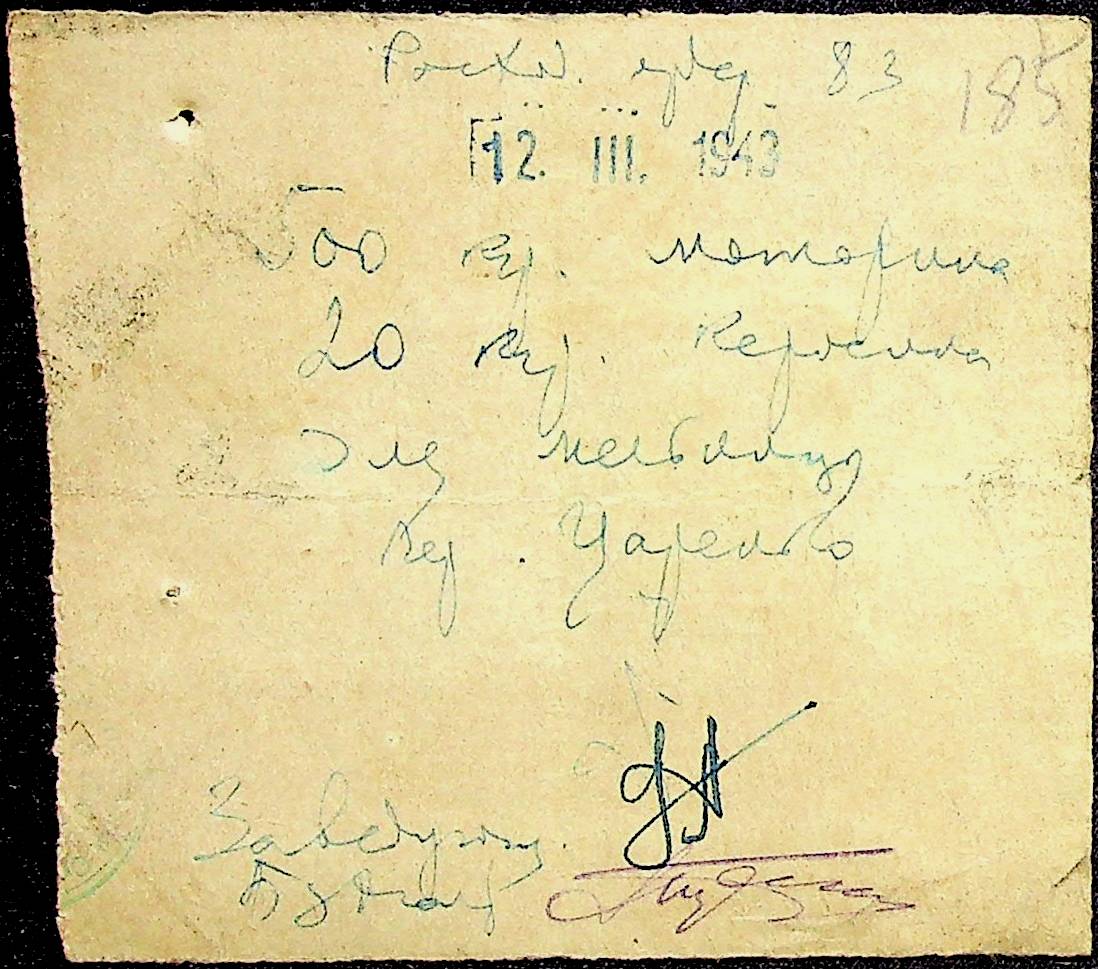 Расход. орд. 83 185
12. III. 1943
500 кгр. моторина
20 кгр. керосина
для мельницы
Царенко
Заведующ.